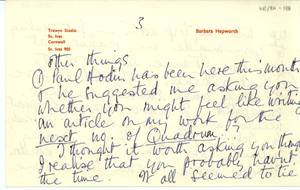 Trewyn Studio
St. Ives
Cornwall
St. Ives
3
Barbara Hepworth
other things
Paul Hodin has been here this month
& he suggested me asking you
whether you might feel like writing
an article on my work for the
next no. of Quadrum?
I thought it worth asking you though
I realise that you probably haven't
the time. It all seemed to tie